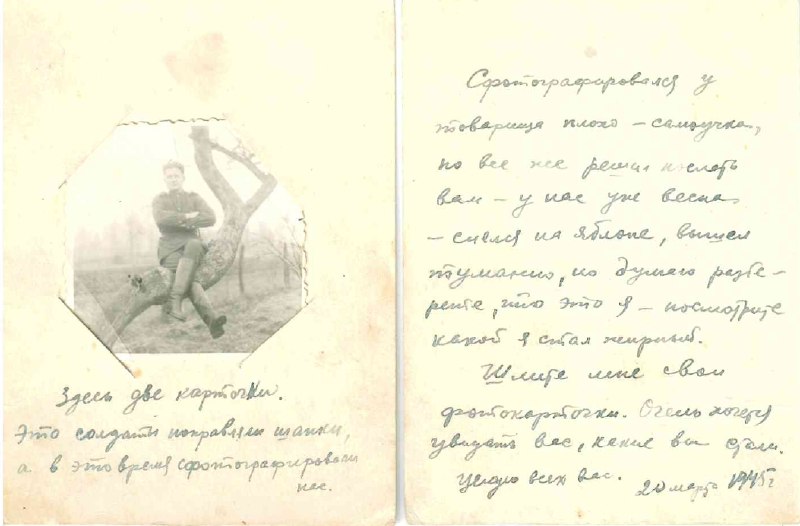 Здесь две карточки.
Это солдаты поправляли шапки,
а в это время сфотографировали
нас.
Сфотографировался у
товарища плохо – самоучка,
но все же решил послать
вам – у нас уже весна
– снялся на яблоне, вышел
туманно, но думаю разбе-
рете, что это я – посмотрите
какой я стал жирный.
Шлите мне свои
фотокарточки. Очень хочется
увидать вас, какие вы стали.
Целую всех вас. 20 марта 1945 г